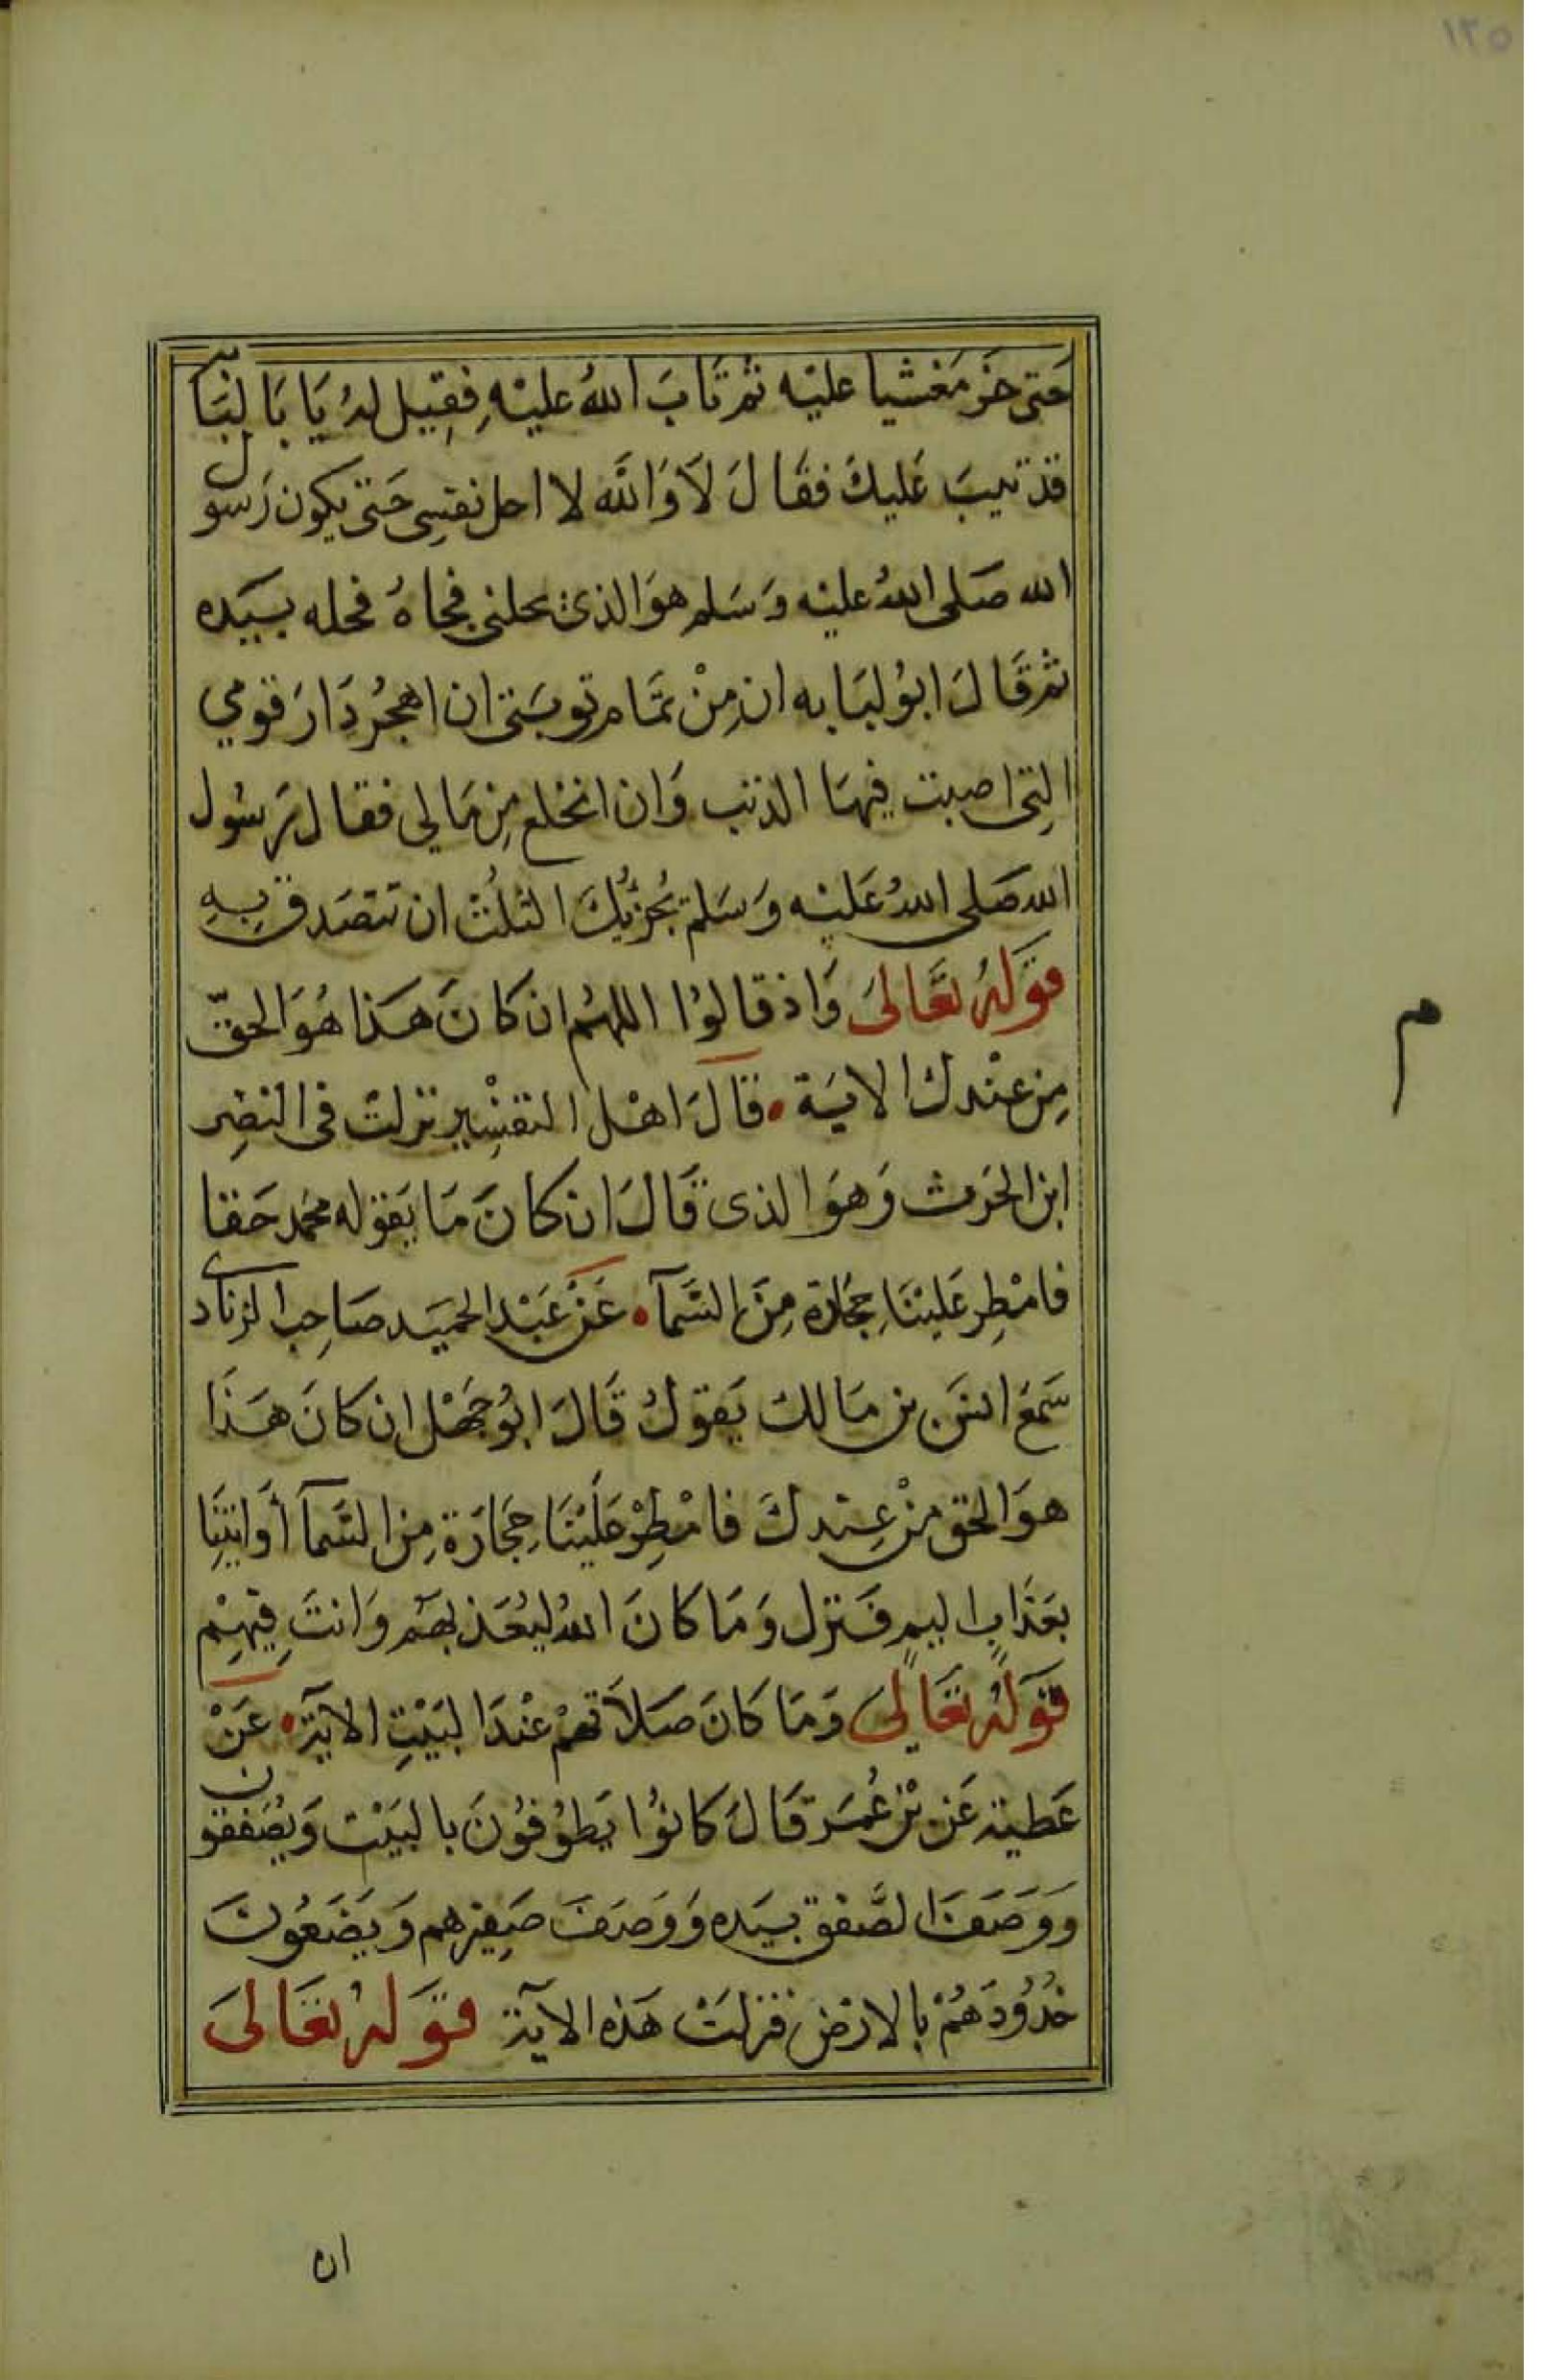 ١٢٥
حَتى خرّ مَغشيا عليْه ثمّ تَابَ اللهُ عليْهِ فقِيل لهُ يَا بَا لبَابَة
قدْ تيبَ عَليكَ فقَالَ لاَ وَاللَّه لا احل نفسِى حَتى يكون رَسول
الله صَلى اللهُ عليْه وَسَلم هوَ الذى يحلنى فجاهُ فحله بيَده
ثمّ قَالَ ابوُ لبَابه ان مِنْ تَمَام توبَتى ان اهجُر دَارَ قومي
التِى اصبت فيهَا الذنب وَان انخلع مِن مَالى فقال رَسُول
الله صَلى اللهُ عَليْه وَسَلم يُجزيُكَ الثلُث ان تتصَدق بِهِ
قوَلهُ تعَالىَ وَاذ قالوُا اللهُم ان كانَ هَذا هُوَ الحقّ
مِن عنْدك الاية • قَالَ اهْل التفسْيِر نزلتْ فى النضِر
ابن الحَرث وَهوَ الذى قَالَ ان كانَ مَا يَقوله محمد حَقا
فامْطِر عَليْنَا حِجَارة مِنَ السَّمآ • عَنْ عَبْد الحميَد صَاحِب الزنادى
سَمعَ انسَ بن مَالك يَقولُ قَالَ ابوُ جَهْل ان كانَ هَذَا
هوَ الحق منْ عِنْدكَ فامْطِرْ عَليْنَا حِجَارَة مِن السَّمآ أَو ائتِنَا
بعَذَابٍ اليم فَنزل وَمَا كانَ اللهُ ليُعَذبهَم وَانتَ فِيهِمْ
قوَلهُ تعَالىَ وَمَا كَانَ صَلاَتهمْ عنْدَ البَيْتِ الايَة • عَنْ
عَطية عَن بْن عُمَر قَالَ كانوُا يَطوُفوُنَ بالبَيْت وَيُصَفقون
وَوَصَفَ الصَّفق بيَده وَوَصَفَ صَفِيرهم وَيَضَعُونَ
خدُودَهُمْ بالارْض فنزلتْ هَذه الآية قوَلهُ تعَالىَ
م
ان